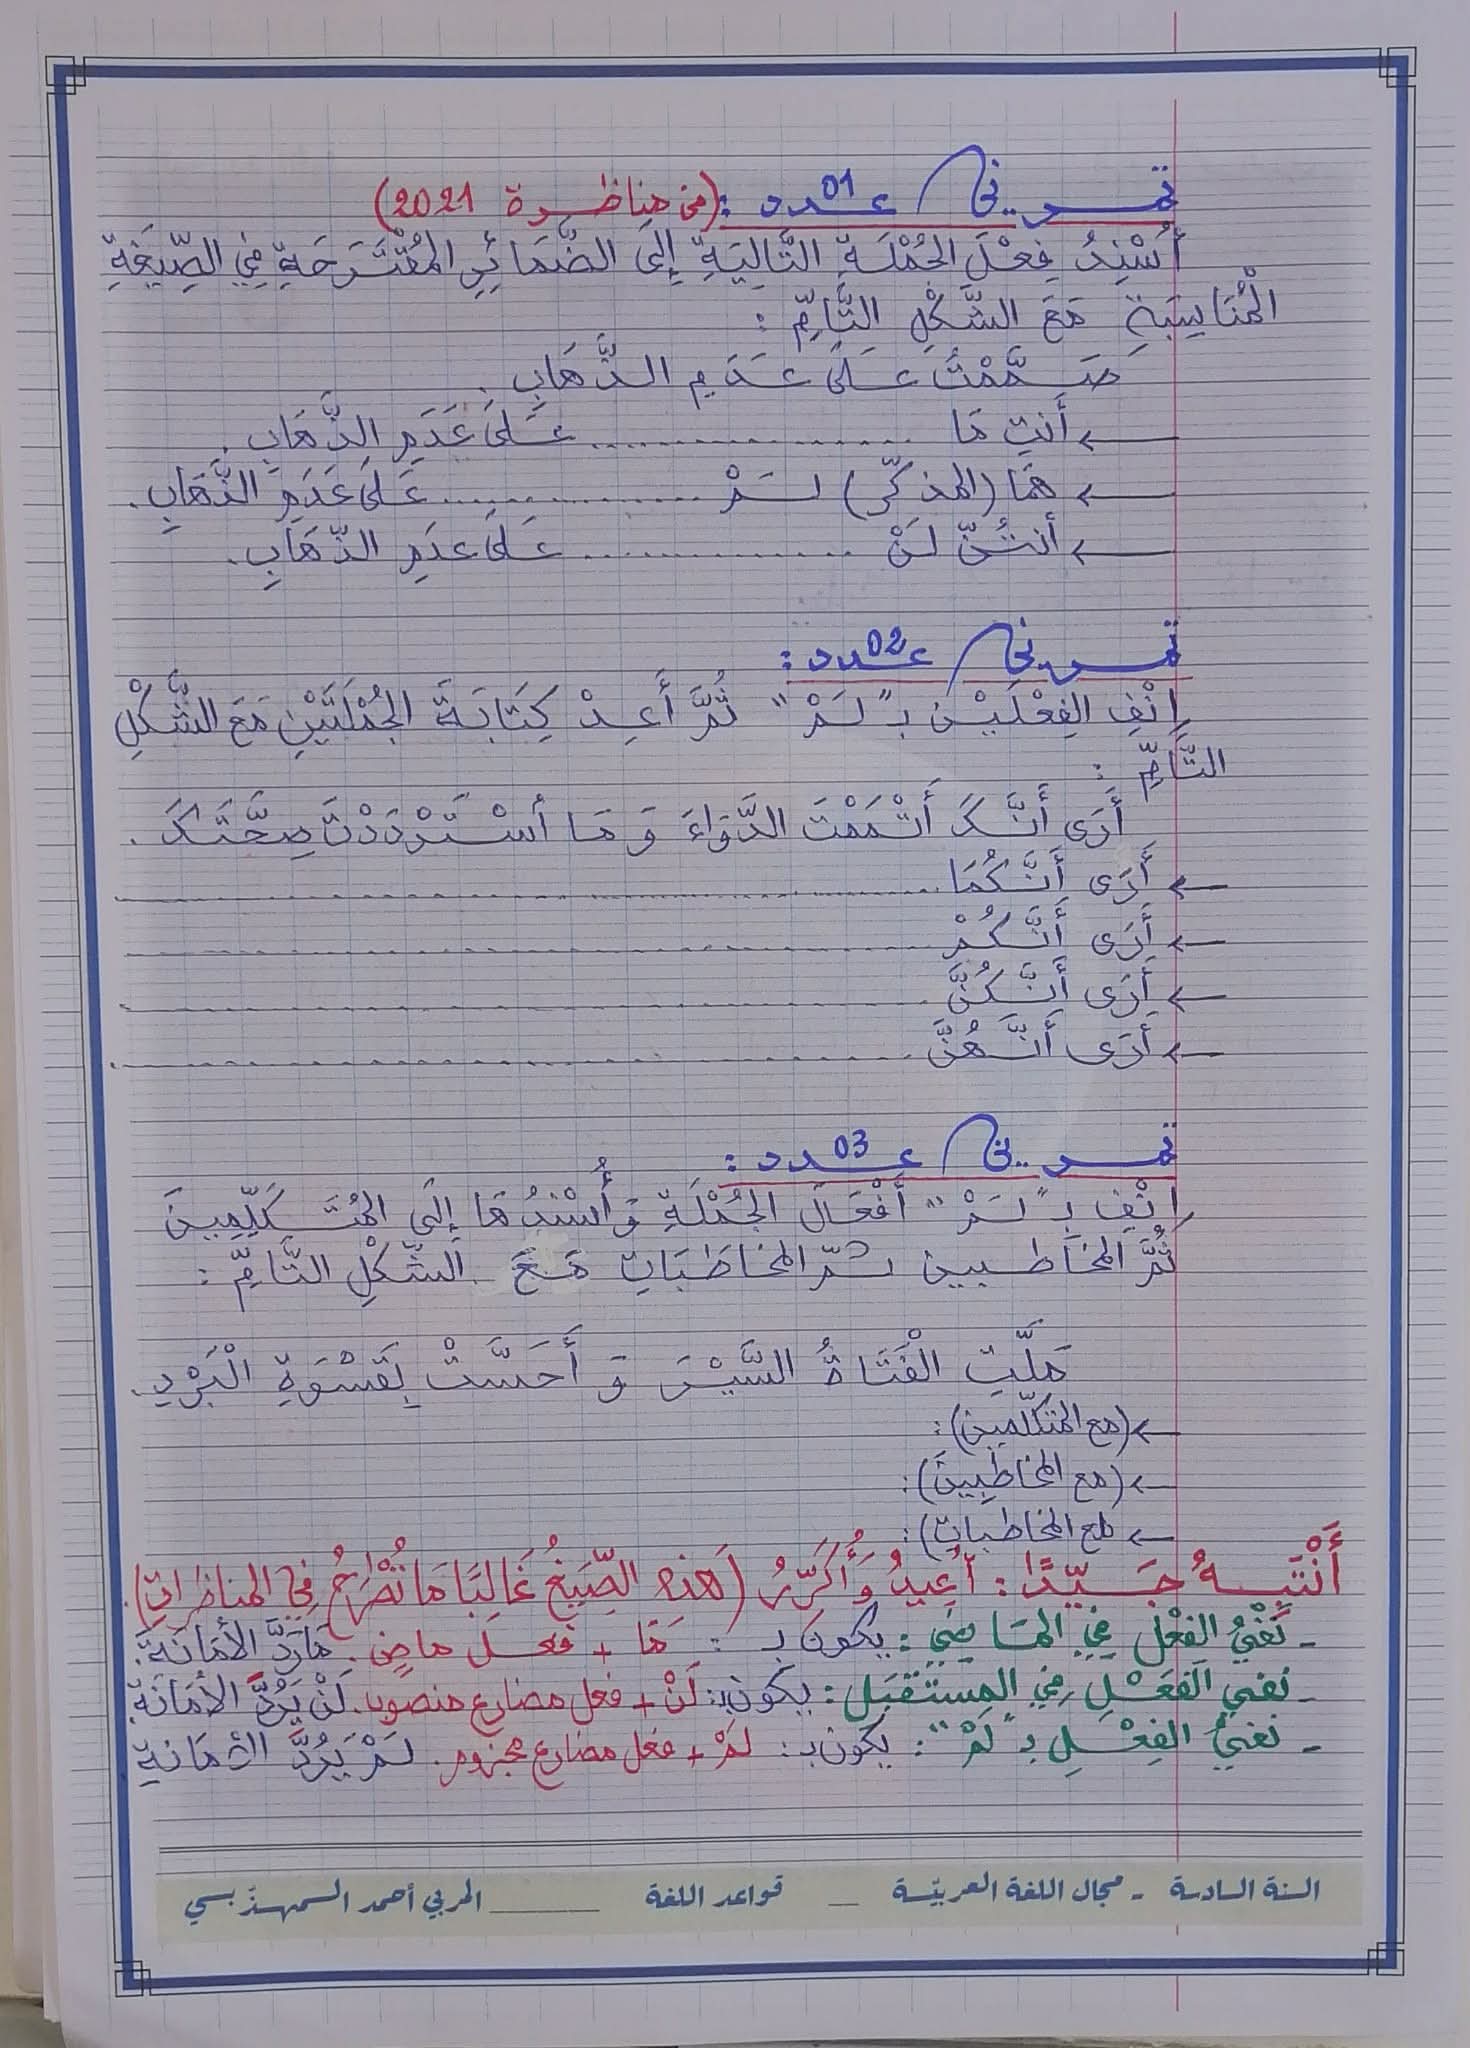 تمرين عدد 01: (من مناظرة 2021)
أُسْنِدُ فِعْلَ الجُمْلَةِ التَّالِيَةِ إِلَى الضَّمَائِرِ المُقْتَرَحَةِ فِي الصِّيغَةِ
الْمُنَاسِبَةِ مَعَ الشَّكْلِ التَّامِّ :
صَمَّمْتُ عَلَى عَدَمِ الذَّهَابِ .
← أَنْتِ مَا .................. عَلَى عَدَمِ الذَّهَابِ .
← هُمَا (المذكّر) لَمْ .................. عَلَى عَدَمِ الذَّهَابِ .
← أَنْتُنَّ لَنْ .................. عَلَى عَدَمِ الذَّهَابِ .
تمرين عدد 02 :
اِنْفِ الفِعْلَيْنِ بـ "لَمْ" ثُمَّ أَعِدْ كِتَابَةَ الجُمْلَتَيْنِ مَعَ الشَّكْلِ
التَّامِّ :
أَرَى أَنَّكَ أَتْمَمْتَ الدَّوَاءَ وَ مَا اسْتَرْدَدْتَ صِحَّتَكَ .
← أَرَى أَنَّكُمَا ..................
← أَرَى أَنَّكُمْ ..................
← أَرَى أَنَّكُنَّ ..................
← أَرَى أَنَّهُنَّ ..................
تمرين عدد 03 :
اِنْفِ بـ "لَمْ" أَفْعَالَ الجُمْلَةِ وَ أُسْنِدُهَا إِلَى المُتَكَلِّمِينَ
ثُمَّ المخاطبين ثمّ المخاطَبَات مَعَ الشَّكْلِ التَّامِّ :
مَلَّتِ الْفَتَاةُ السَّيْرَ وَ أَحَسَّتْ بِقَسْوَةِ الْبَرْدِ .
← (مع المتكلّمين) :
← (مع المخاطبين) :
← (مع المخاطبات) :
أَنْتَبِهُ جَيِّدًا : أُعِيدُ وَأُكَرِّرُ (هذه الصِّيَغُ غَالِبًا مَا تُطْرَحُ فِي المناظرات).
- نَفْيُ الفِعْلِ فِي المَاضِي : يكون بـ : مَا + فعل ماض . مَا رَدَّ الأَمَانَةَ .
- نفي الفِعْلِ في المستقبل : يكون بـ : لَنْ + فعل مضارع منصوب . لَنْ يَرُدَّ الأَمَانَةَ
- نفيُ الفِعْلِ بـ "لَمْ" : يكون بـ : لَمْ + فعل مضارع مجزوم . لَمْ يَرُدَّ الأَمَانَةَ
السنة السادسة - مجال اللغة العربيّة _ قواعد اللغة _____ المربي أحمد